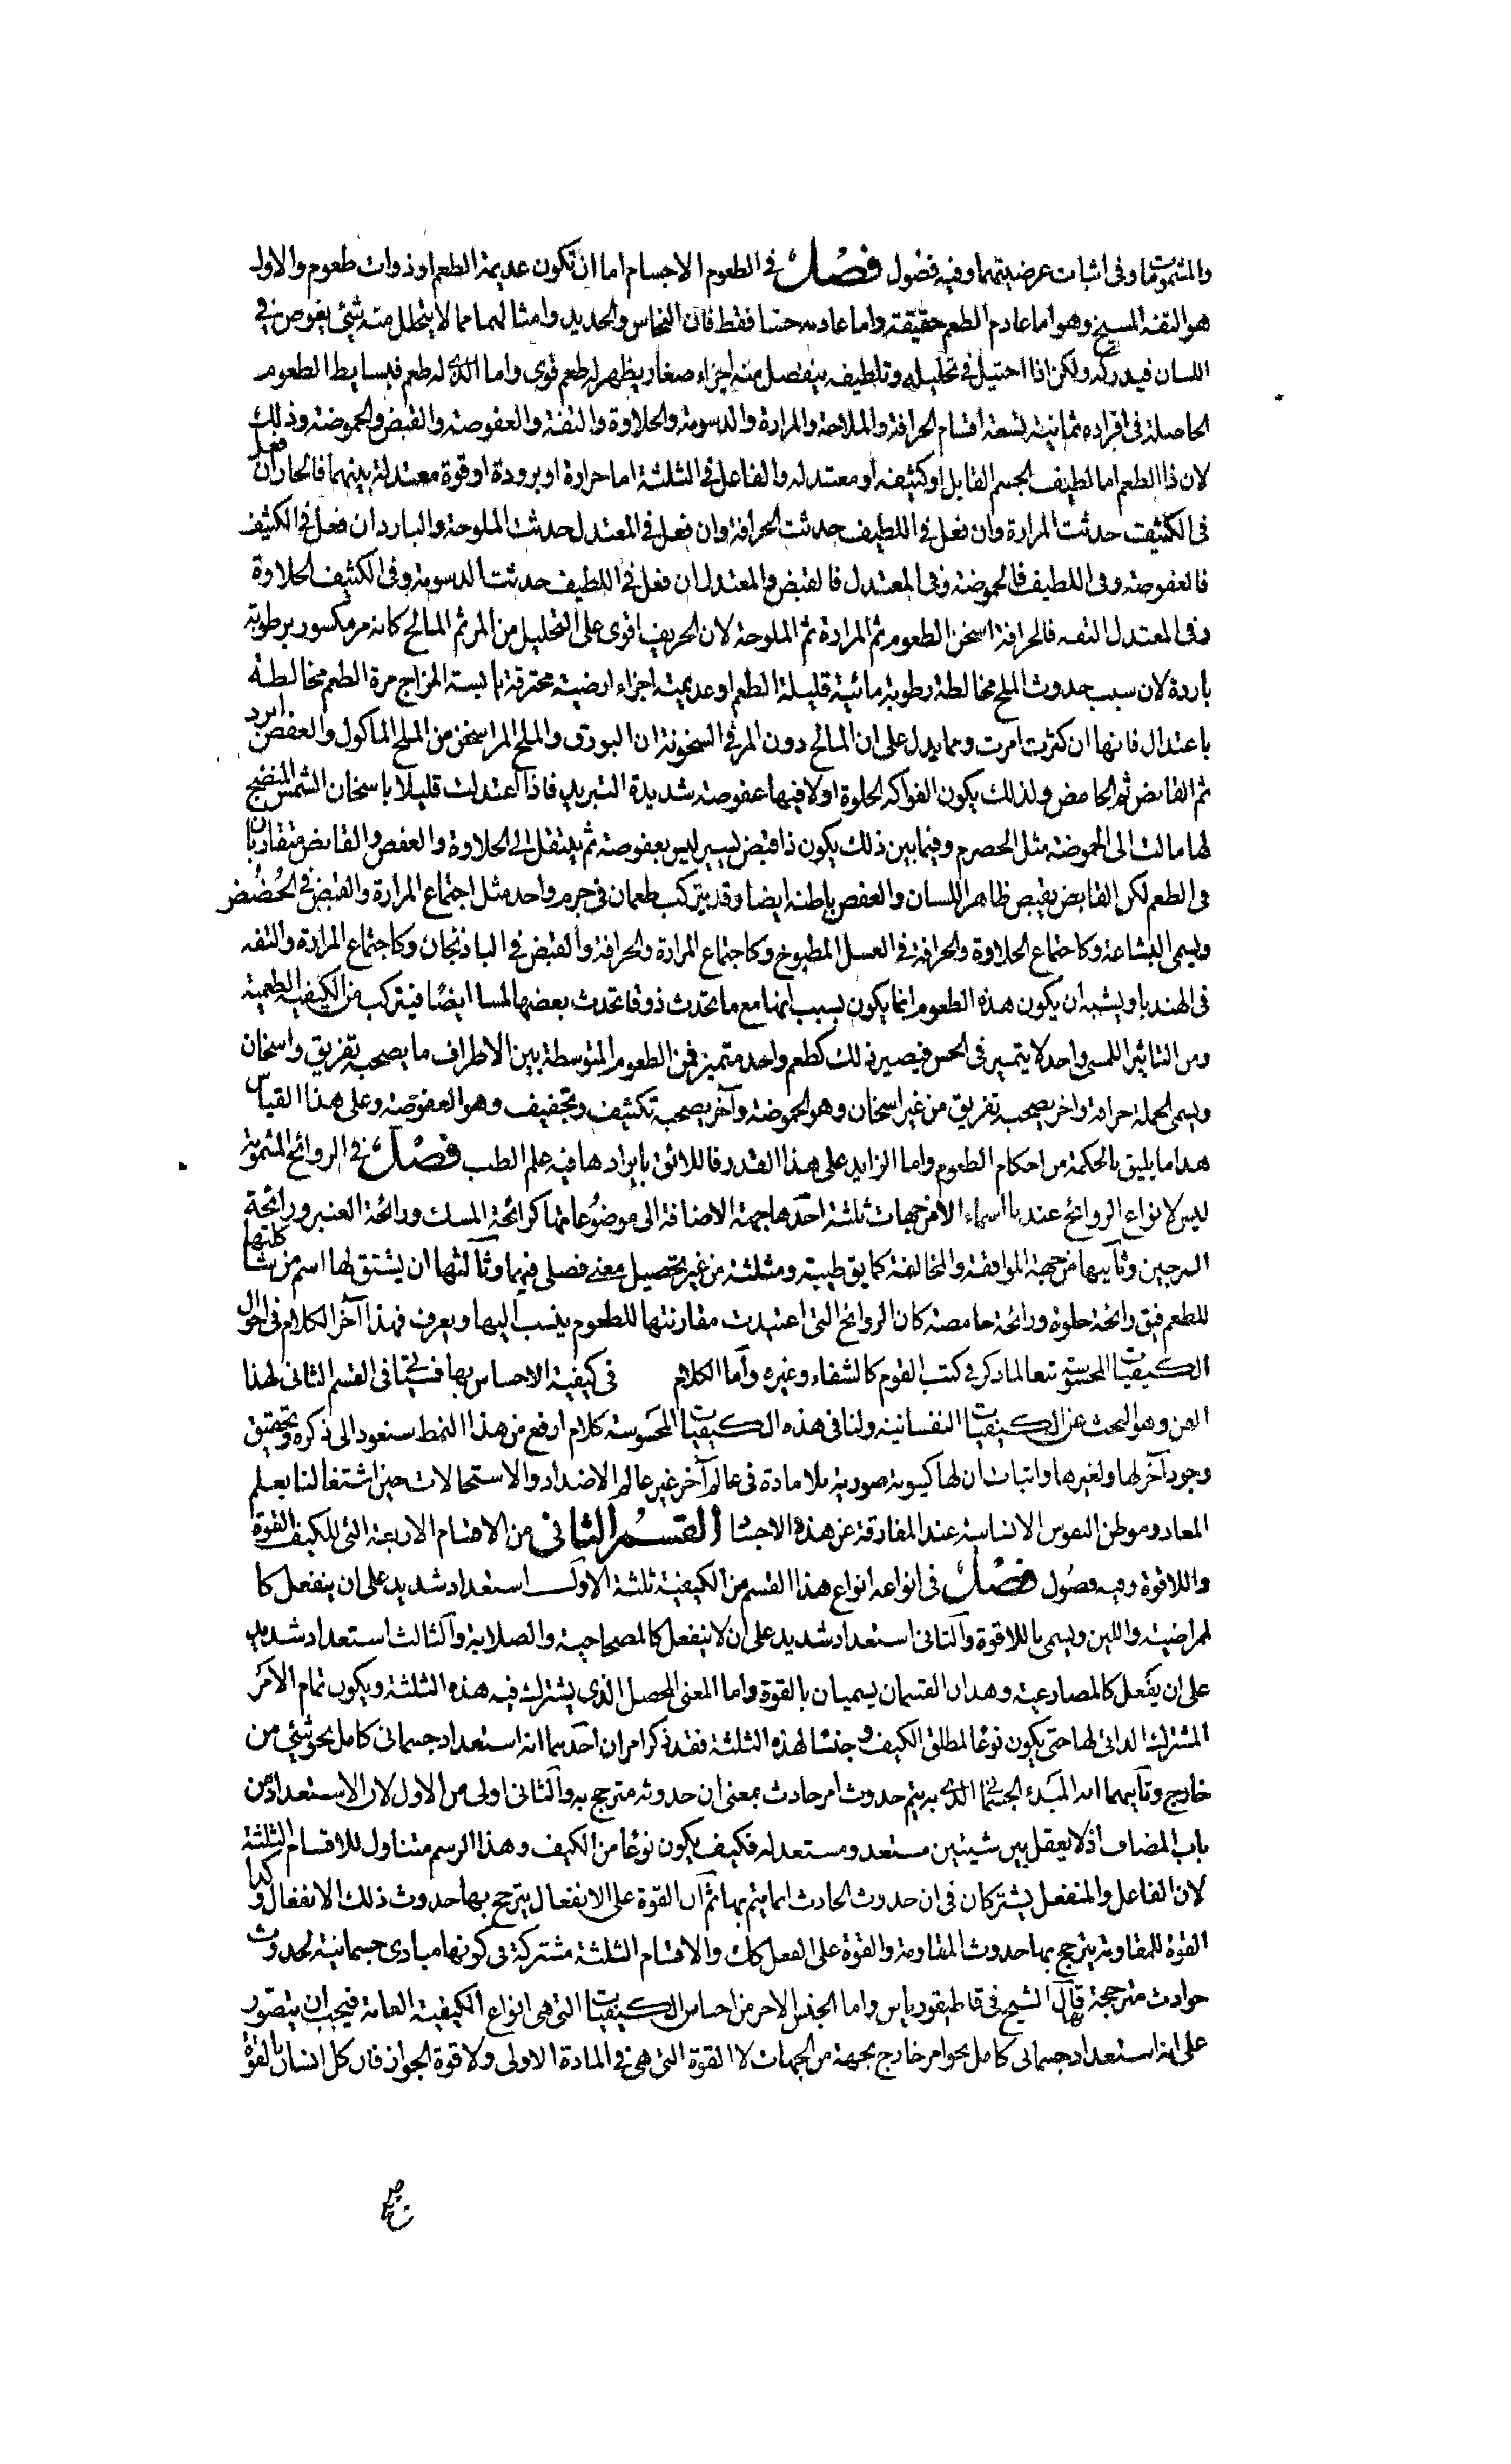 والمشمومات وما وفى اثبات عرضيتهما وفيه فصول فصل في الطعوم الاجسام اما ان تكون عديمة الطعم او ذوات طعوم والاول
هو التفه المسيخ وهو اما عادم الطعم حقيقة واما عادمه حسا فقط فان النحاس والحديد وامثالهما مما لا يتحلل منه شئ يغوص في
اللسان فيدركه ولكن اذا احتيل في تحليله وتلطيفه ينفصل منه اجزاء صغار يظهر له طعم قوى واما الذي له طعم فبسايط الطعوم
الحاصلة فى افراده ثمانية بتسعة اقسام الحرافة والملاحة والمرارة والدسومة والحلاوة والتفة والعفوصة والقبض والحموضة وذلك
لان ذا الطعم اما لطيف الجسم القابل او كثيفه او معتدله والفاعل في الثلثة اما حرارة او برودة او قوة معتدلة بينهما فالحار ان فعل
فى الكثيف حدثت المرارة وان فعل فى اللطيف حدثت الحرافة وان فعل في المعتدل حدثت الملوحة والبارد ان فعل في الكثيف
فالعفوصة وفى اللطيف فالحموضة وفى المعتدل فالقبض والمعتدل ان فعل في اللطيف حدثت الدسومة وفى الكثيف الحلاوة
وفى المعتدل التفه فالحرافة اسخن الطعوم ثم المرارة ثم الملوحة لان الحريف اقوى على التحليل من المر ثم المالح كانه مر مكسور برطوبة
باردة لان سبب حدوث الملح مخالطة رطوبة مائية قليلة الطعم او عديمته اجزاء ارضية محترقة يابسة المزاج مرة الطعم مخالطة
باعتدال فانها ان كثرت امرت ومما يدل على ان المالح دون المر في السخونة ان البورق والملح المر اسخن من الملح الماكول والعفص ابرد
ثم القابض ثم الحامض ولذلك يكون الفواكه الحلوة اولا فيها عفوصة شديدة التبريد فاذا اعتدلت قليلا باسخان الشمس المنضج
لها مالت الى الحموضة مثل الحصرم وفيما بين ذلك يكون ذا قبض يسير ليس بعفوصة ثم ينتقل الى الحلاوة والعفص والقابض متقاربان
فى الطعم لكن القابض يقبض ظاهر اللسان والعفص باطنه ايضا وقد يتركب طعمان فى جرم واحد مثل اجتماع المرارة والقبض في الحُضُض
ويسمى البشاعة وكاجتماع الحلاوة والحرافة في العسل المطبوخ وكاجتماع المرارة والحرافة والقبض في الباذنجان وكاجتماع المرارة والتفه
فى الهندبا ويشبه ان يكون هذه الطعوم انما يكون بسبب انها مع ما تحدث ذوقا تحدث بعضها لمسا ايضا فيتركب من الكيفية الطعمية
ومن التاثير اللمسى واحد لا يتميز فى الحس فيصير ذلك كطعم واحد متميز فمن الطعوم المتوسطة بين الاطراف ما يصحبه تفريق واسخان
ويسمى الجملة حرافة واخر يصحبه تفريق من غير اسخان وهو الحموضة وآخر يصحبه تكثيف وتجفيف وهو العفوصة وعلى هذا القياس
هذا ما يليق بالحكمة من احكام الطعوم واما الزايد على هذا القدر فاللائق بايرادها فيه علم الطب فصل في الروائح المشمومة
ليس لانواع الروائح عندنا اسماء الا من جهات ثلثة احدها جهة الاضافة الى موضوعاتها كرائحة المسك ورائحة العنبر ورائحة
السرجين وثانيها من جهة الموافقة والمخالفة كما يق طيبة ومنتنة من غير تحصيل معنى فصلى فيهما وثالثها ان يشتق لها اسم من مشاكلتها
للطعم فيق رائحة حلوة ورائحة حامضة كان الروائح التى اعتيدت مقارنتها للطعوم ينسب اليها ويعرف فهذا آخر الكلام فى احوال
الكيفيات المحسوسة تبعا لما ذكر فى كتب القوم كالشفاء وغيره وأما الكلام فى كيفية الاحساس بها فسيأتي فى القسم الثانى لهذا
الفن وهو البحث عن الكيفيات النفسانية ولنا فى هذه الكيفيات المحسوسة كلام ارفع من هذا النمط سنعود الى ذكره وتحقيق
وجود آخر لها ولغيرها واثبات ان لها كينونة صورية بلا مادة فى عالم آخر غير عالم الاضداد والاستحالات حين اشتغالنا بعلم
المعاد وموطن النفوس الانسانية عند المفارقة عن هذه الاجساد القسم الثانى من الاقسام الاربعة التى للكيف القوة
واللاقوة وفيه فصول فصل فى انواعه انواع هذا القسم من الكيفية ثلثة الاول استعداد شديد على ان ينفعل كا
لمراضية واللين ويسمى باللاقوة والثانى استعداد شديد على ان لا ينفعل كالمصحاحية والصلابة والثالث استعداد شديد
على ان يفعل كالمصارعية وهذان القسمان يسميان بالقوة واما المعنى المحصل الذى يشترك فيه هذه الثلثة ويكون تمام الامر
المشترك الذاتى لها حتى يكون نوعا لمطلق الكيف وجنسا لهذه الثلثة فقد ذكر امران احدهما انه استعداد جسمانى كامل نحو شئ من
خارج وثانيهما انه المبدء الجسمانى الذي به يتم حدوث امر حادث بمعنى ان حدوثه مترجح به والثانى اولى من الاول لان الاستعداد من
باب المضاف اذ لا يعقل الا بين شيئين مستعد ومستعد له فكيف يكون نوعا من الكيف وهذا الرسم متناول للاقسام الثلثة
لان الفاعل والمنفعل يشتركان فى ان حدوث الحادث انما يتم بهما ثم ان القوة على الانفعال يترجح بها حدوث ذلك الانفعال وكذا
القوة للمقاومة يترجح بها حدوث المقاومة والقوة على الفعل كك والاقسام الثلثة مشتركة فى كونها مبادى جسمانية لحدوث
حوادث مترجحة بها قال الشيخ فى قاطيقورياس واما الجنس الاخر من اجناس الكيفيات التى هى انواع الكيفية العامة فيجب ان يتصور
على انه استعداد جسمانى كامل نحو امر خارج بجهة من الجهات لا القوة التى هى في المادة الاولى ولا قوة الجواز فان كل انسان بالقوة